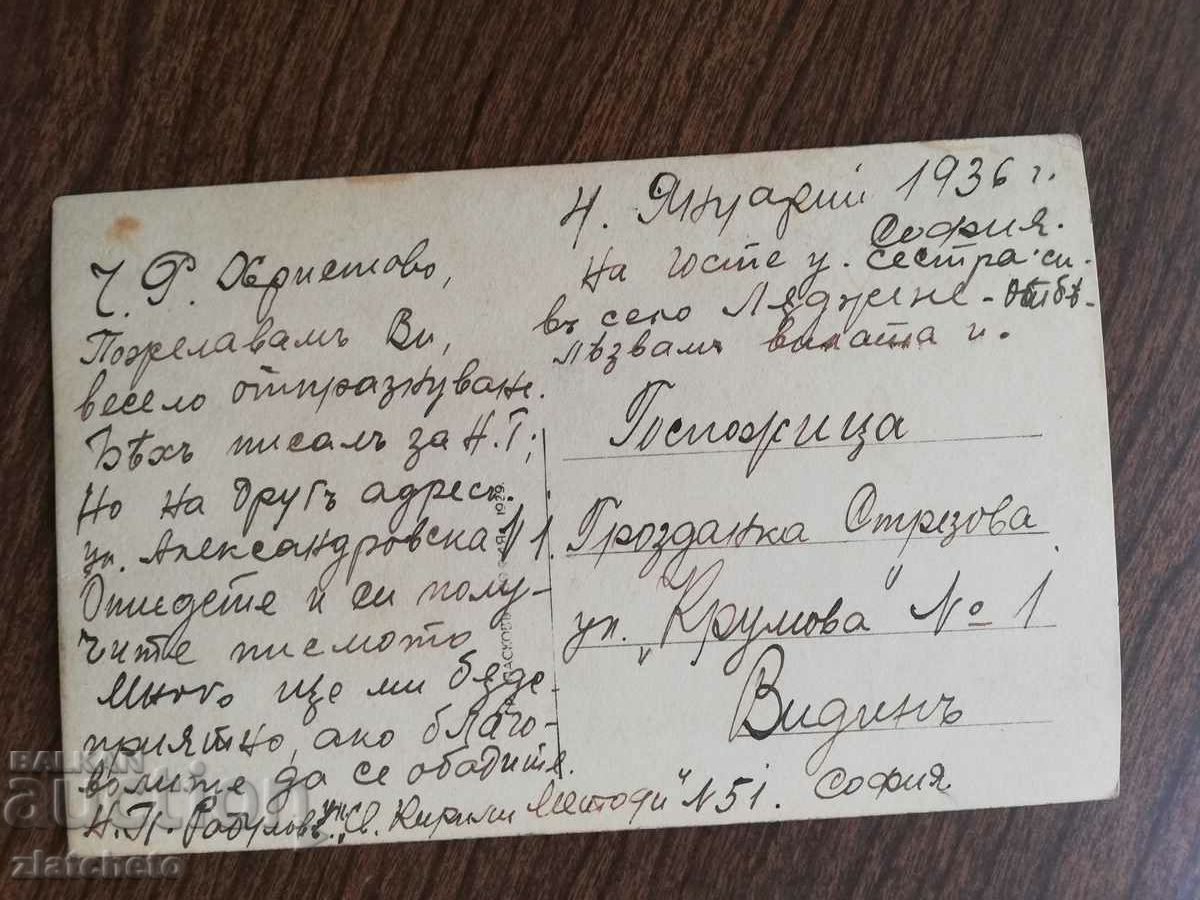 4. Януарий 1936 г.
София.
На гости у. сестра си.
въ село Лъджене - отбѣ-
лѣзвамъ вилата и.
Ч. Р. Христово,
Пожелавамъ Ви,
весело отпразнуване.
Бѣхъ писалъ за Н. Г;
Но на другъ адресъ.
ул. Александровска №1.
Отидете и си полу-
чите писмото
Много ще ми бѫде
приятно, ако благо-
волите да се обадите.
Н. П. ул. "Св. Кирилъ и Методи" № 51. София
Госпожица
Грозданка Стрезова
ул. "Крумова" № 1
Видинъ
ПАСКОВЪ
1929
BALKAN
auction
zlatcheto